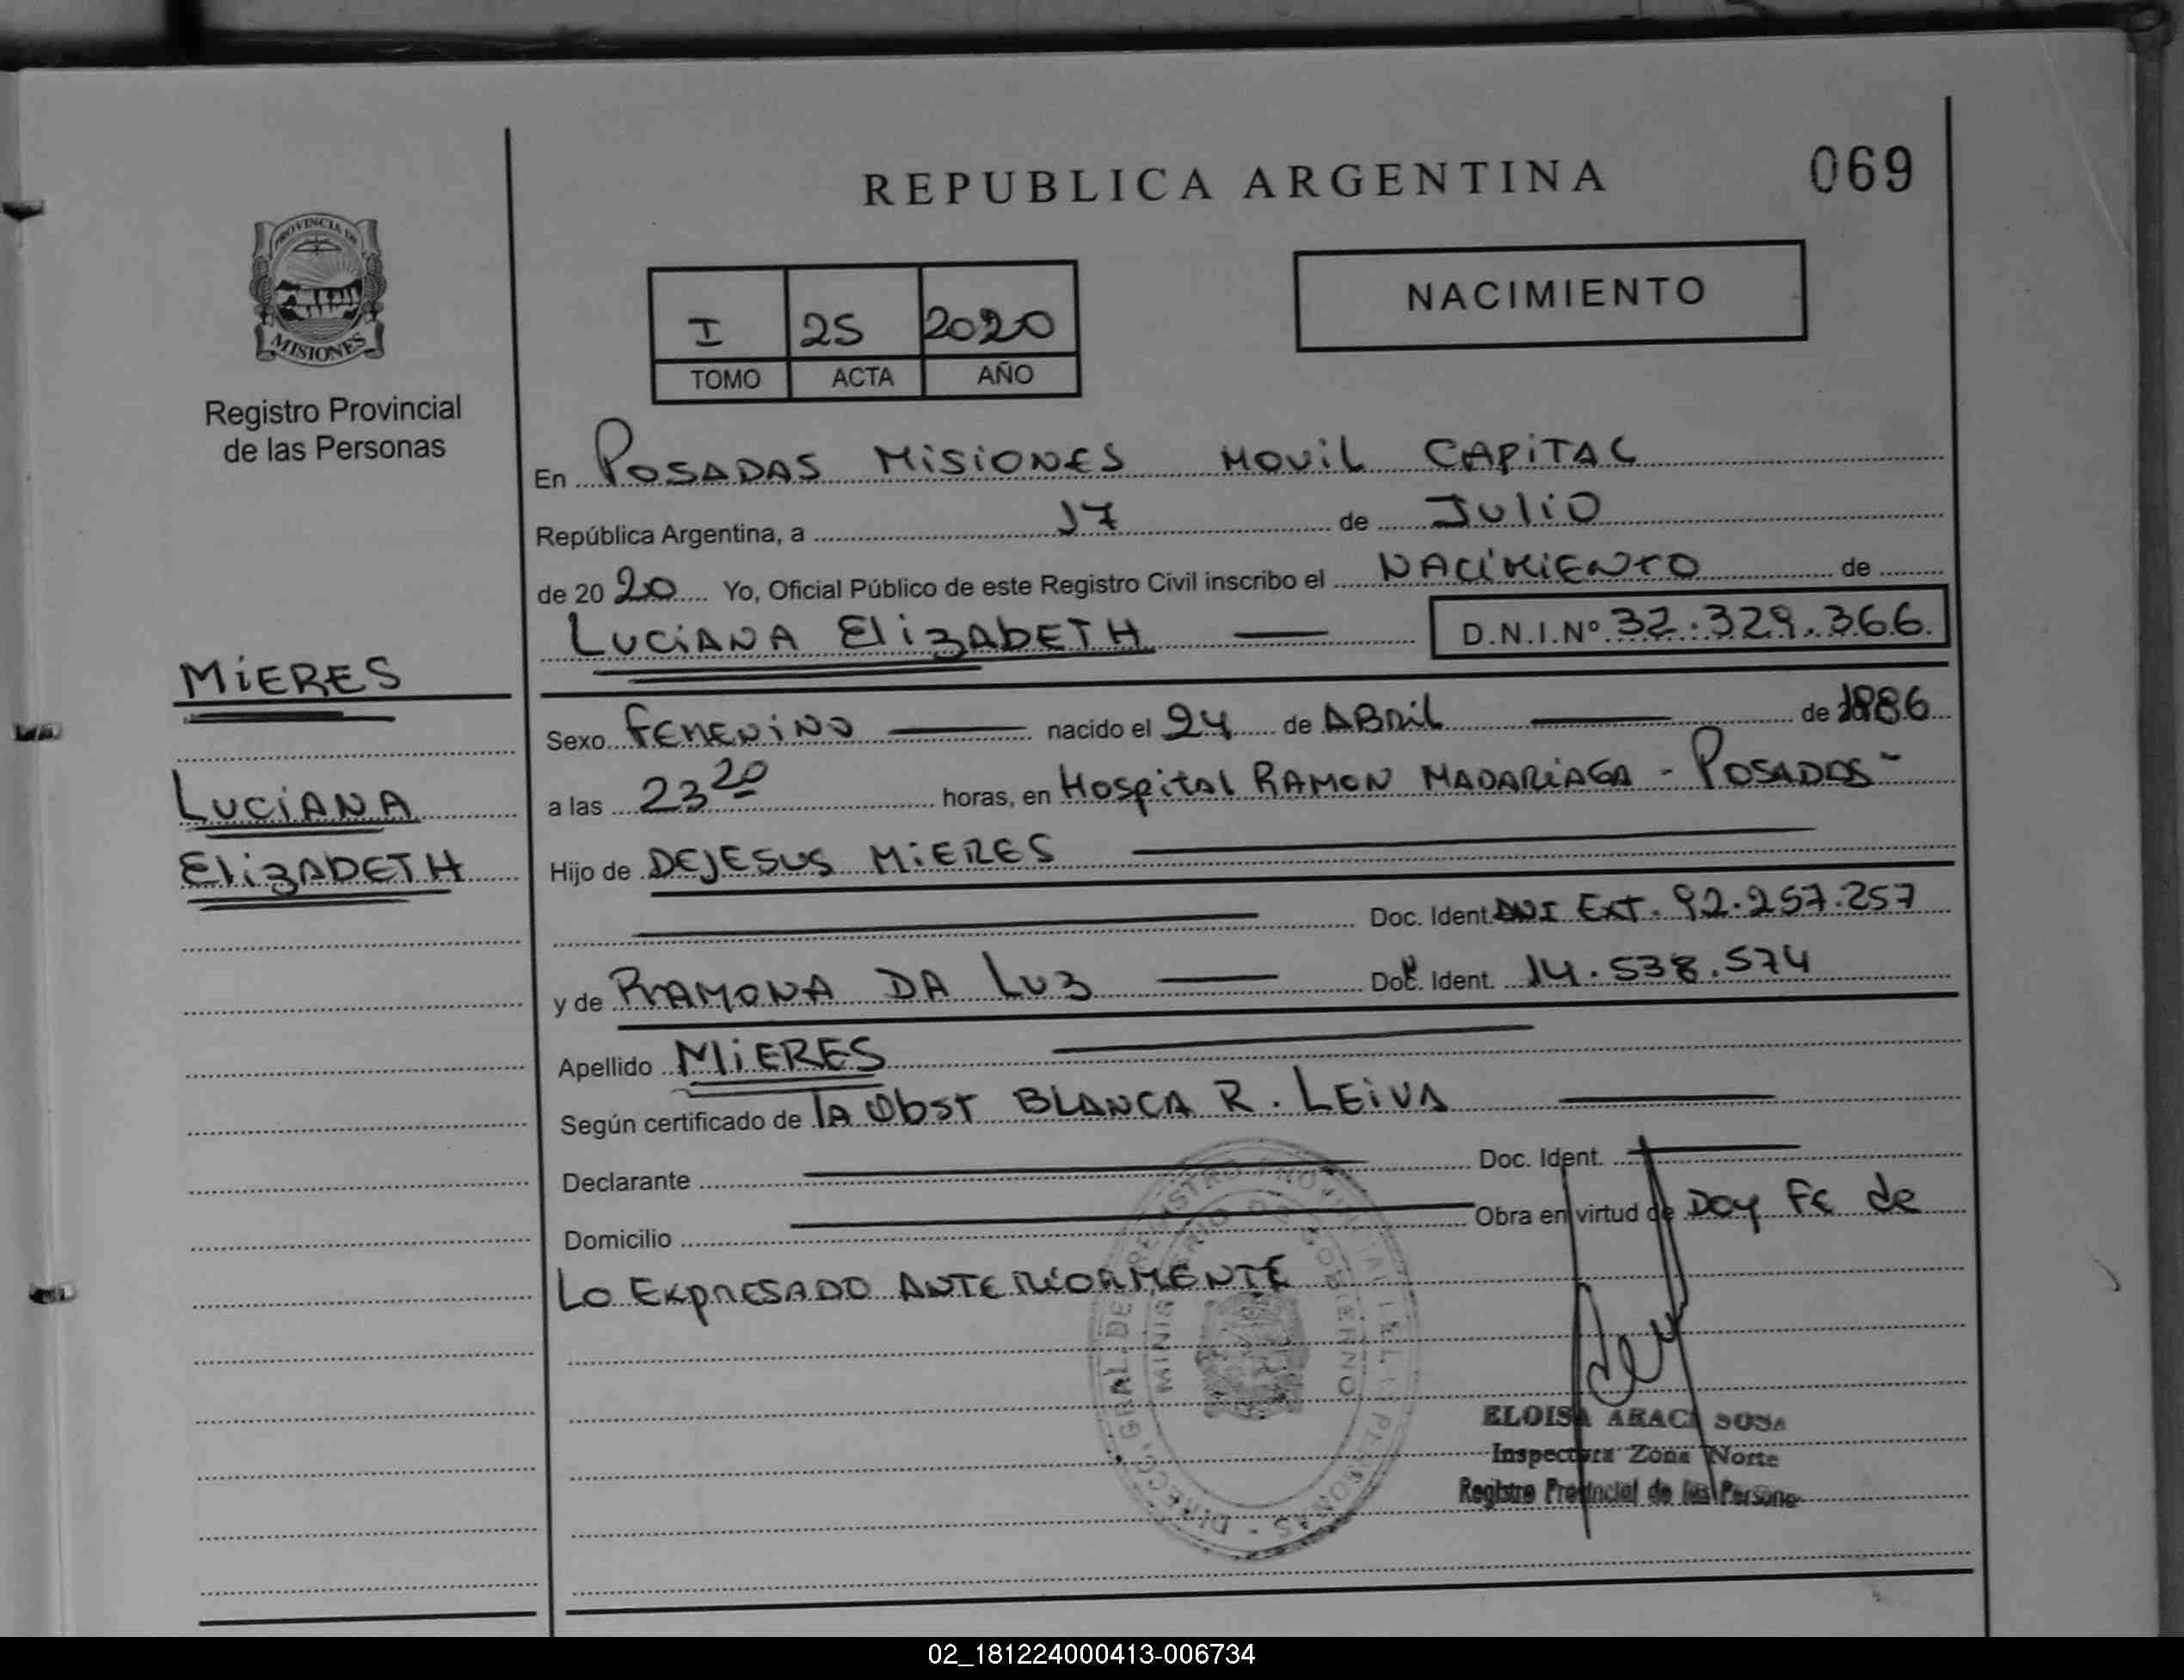 REPUBLICA ARGENTINA
069
PROVINCIA DE
MISIONES
Registro Provincial
de las Personas
I 25 2020
TOMO ACTA AÑO
NACIMIENTO
En POSADAS MISIONES MOVIL CAPITAL
República Argentina, a 17 de JULIO
de 20 20 Yo, Oficial Público de este Registro Civil inscribo el NACIMIENTO de
LUCIANA ElizAbETH D.N.I.Nº 32.329.366
MIERES
LUCIANA
ElizABETH
Sexo FEMENINO nacido el 24 de ABRIL de 1986
a las 23 20 horas, en Hospital RAMON MADARIAGA - POSADAS -
Hijo de DEJESUS MIERES
Doc. Ident. DNI EXT. 92.257.257
y de RAMONA DA LUZ Doc. Ident. 14.538.574
Apellido MIERES
Según certificado de lA Obst BLANCA R. LEIVA
Declarante Doc. Ident.
Domicilio Obra en virtud de Doy Fe de
Lo EXPRESADO ANTERIORMENTE
ELOISA ARACI SOSA
Inspectora Zona Norte
Registro Provincial de las Persona
02_181224000413-006734